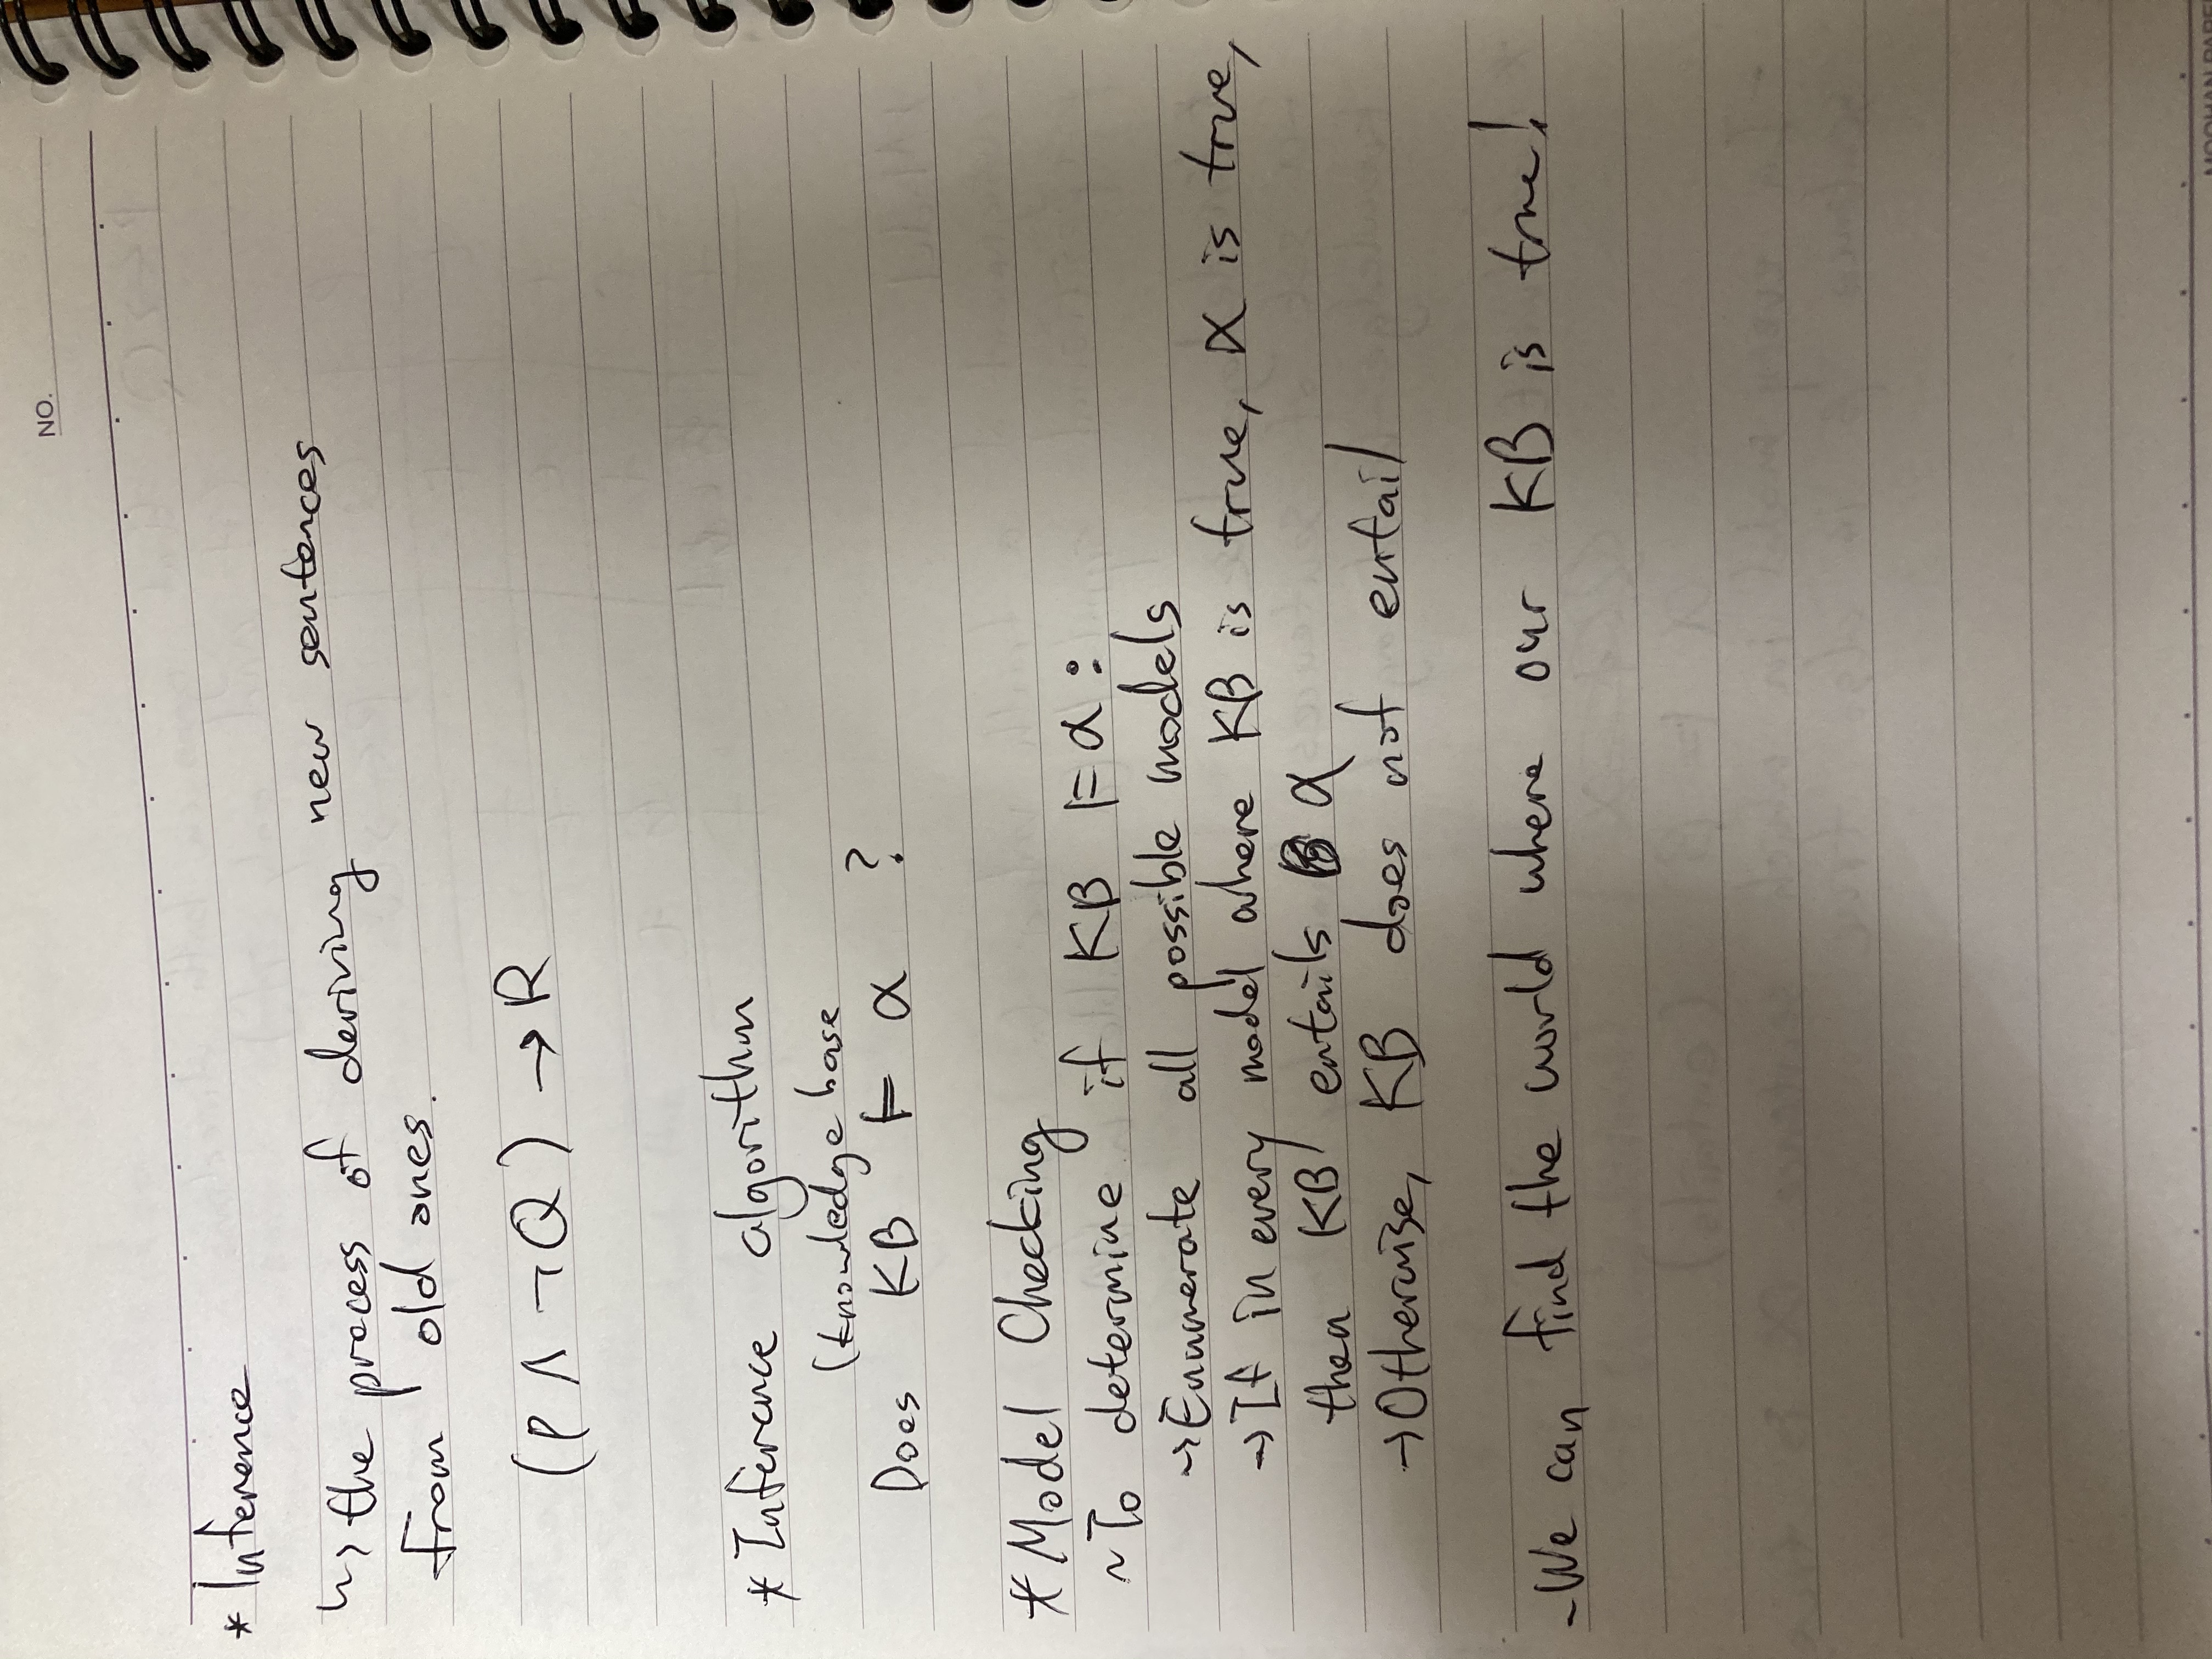 NO.
* Inference
↳ the process of deriving new sentences
from old ones.
(P ∧ ¬Q) → R
* Inference algorithm
(knowledge base
Does KB ⊨ α ?
* Model Checking
~ To determine if KB ⊨ α :
→ Enumerate all possible models
→ If in every model where KB is true, α is true,
then KB entails α
→ Otherwise, KB does not entail
- We can find the world where our KB is true!